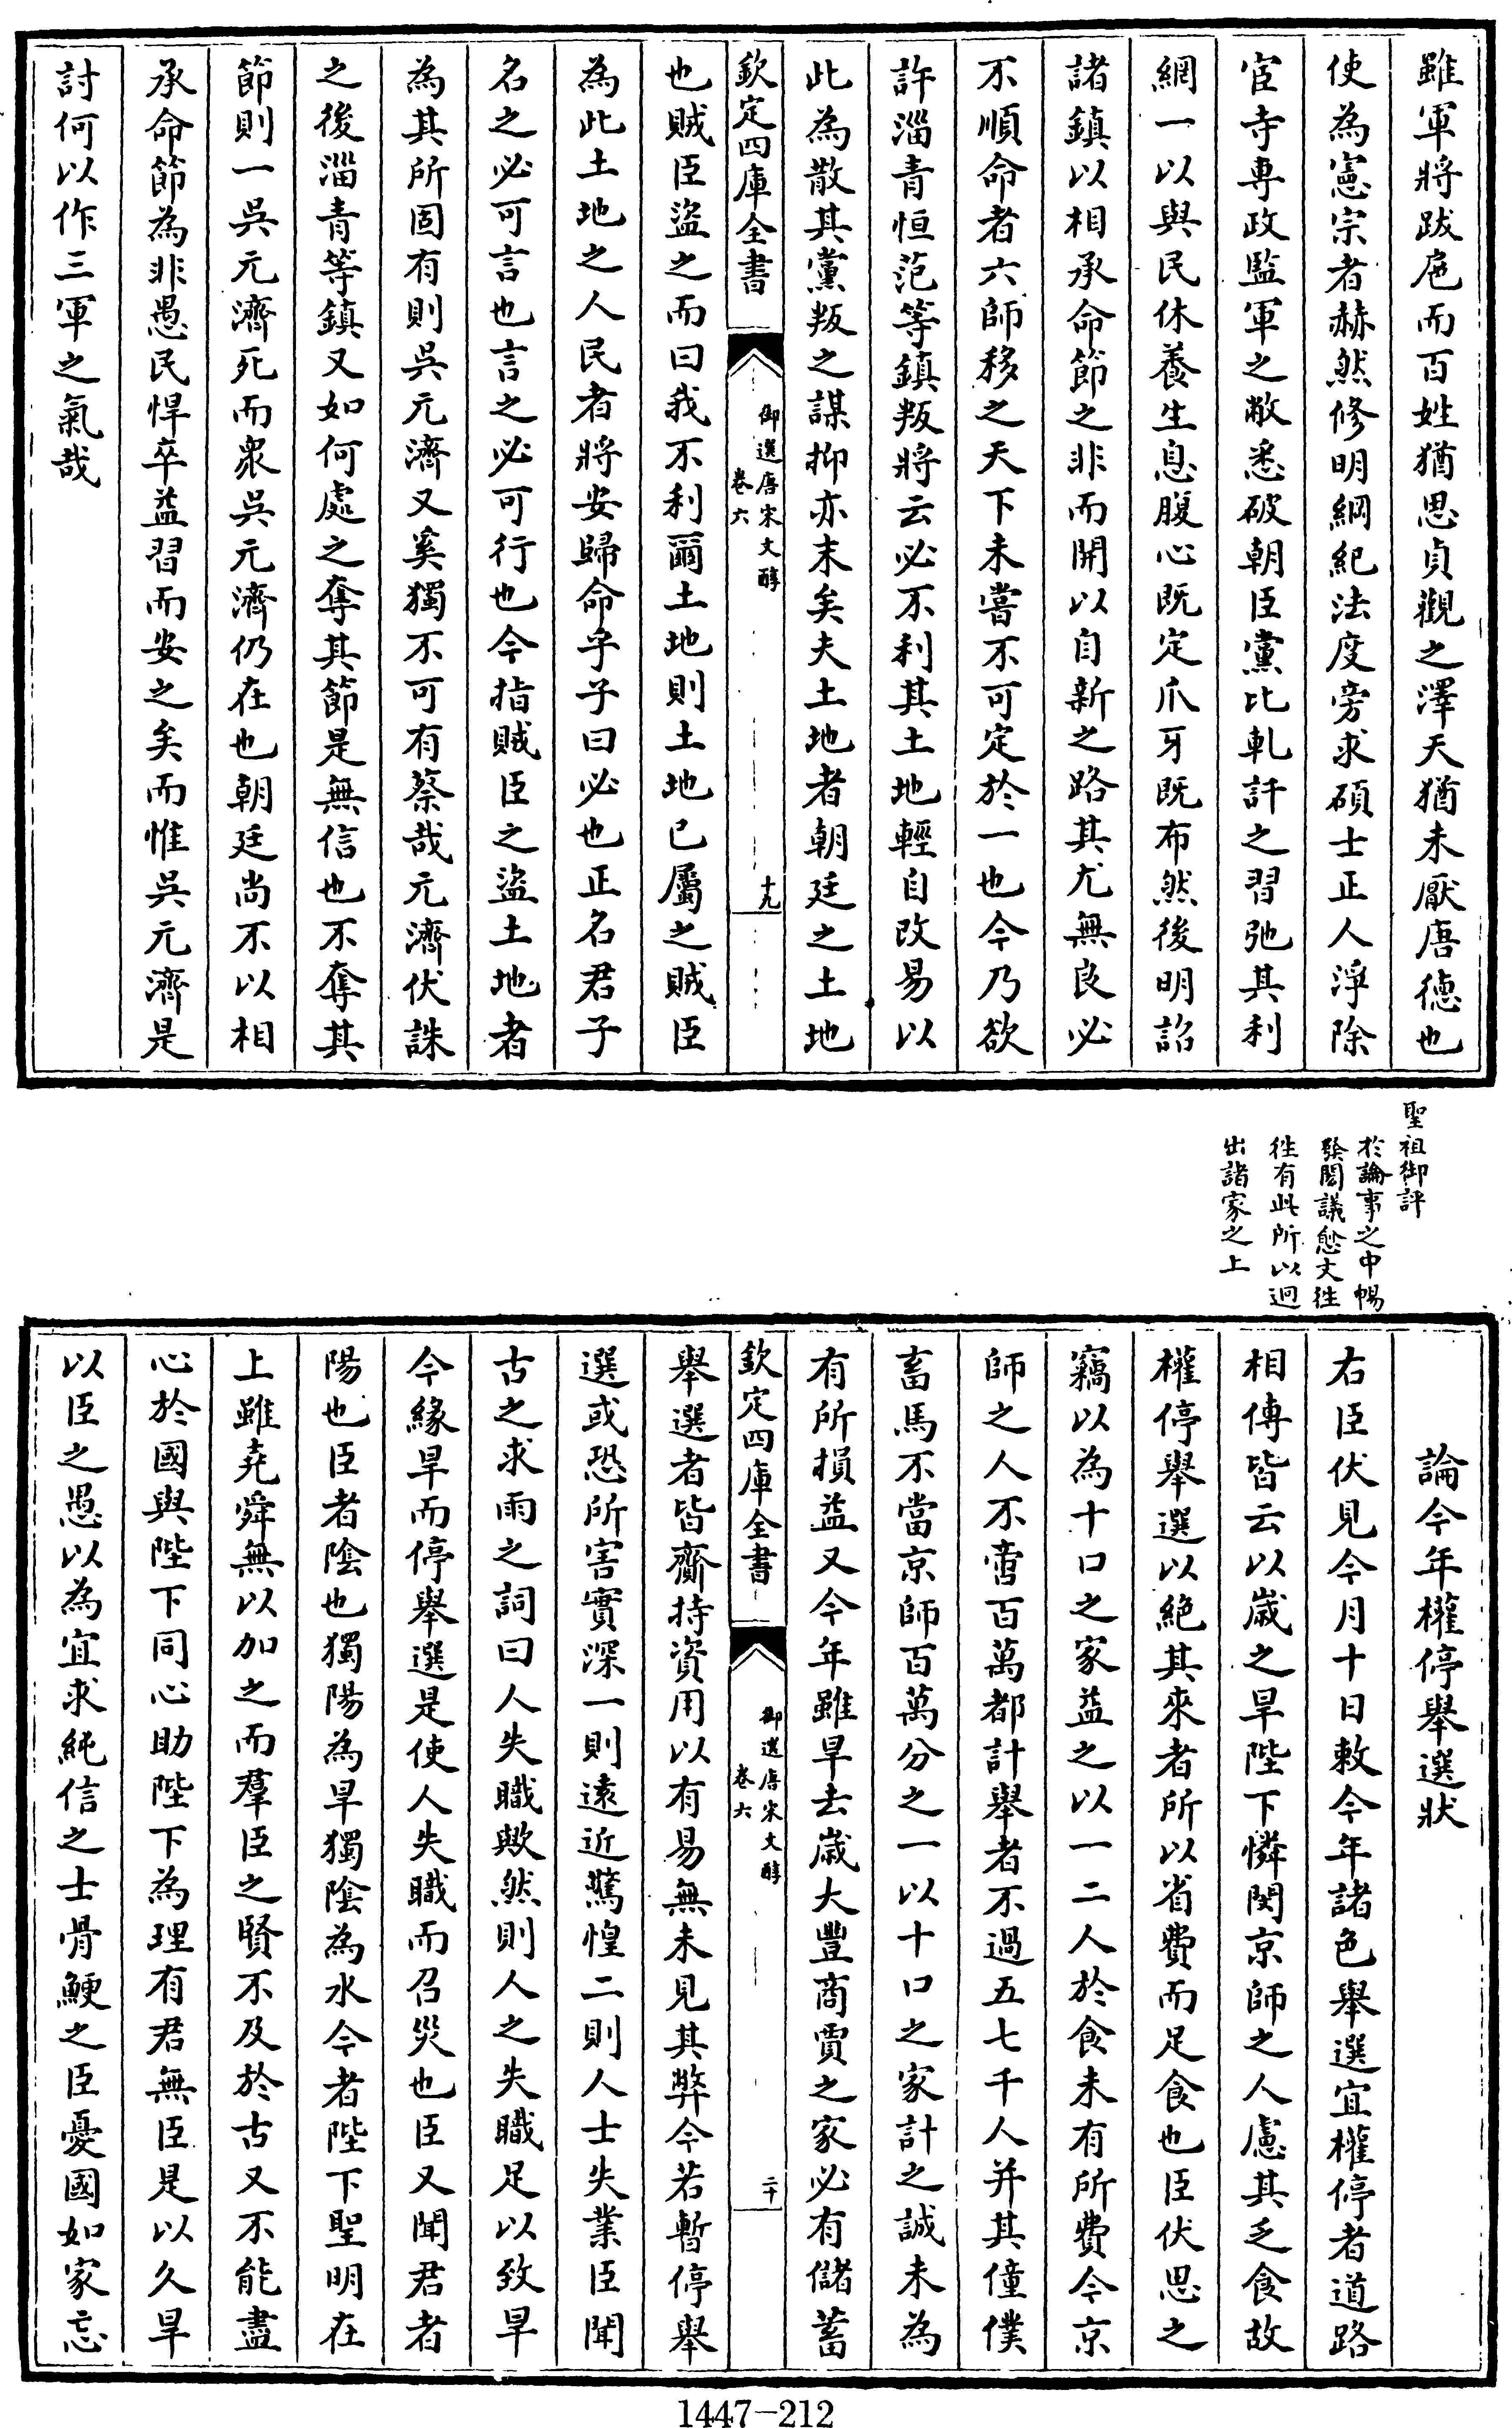 雖軍將跋扈而百姓猶思貞觀之澤天猶未厭唐德也
使為憲宗者赫然修明綱紀法度旁求碩士正人淨除
宦寺專政監軍之敝悉破朝臣黨比軋訐之習弛其利
網一以與民休養生息腹心既定爪牙既布然後明詔
諸鎮以相承命節之非而開以自新之路其尤無良必
不順命者六師移之天下未嘗不可定於一也今乃欲
許淄青恒范等鎮叛將云必不利其土地輕自改易以
此為散其黨叛之謀抑亦末矣夫土地者朝廷之土地
欽定四庫全書
御選唐宋文醇
卷六
十九
也賊臣盜之而曰我不利爾土地則土地已屬之賊臣
為此土地之人民者將安歸命乎子曰必也正名君子
名之必可言也言之必可行也今指賊臣之盜土地者
為其所固有則吳元濟又奚獨不可有蔡哉元濟伏誅
之後淄青等鎮又如何處之奪其節是無信也不奪其
節則一吳元濟死而衆吳元濟仍在也朝廷尚不以相
承命節為非愚民悍卒益習而安之矣而惟吳元濟是
討何以作三軍之氣哉
聖祖御評
於論事之中暢
發閎議愈文往
往有此所以迥
出諸家之上
論今年權停舉選狀
右臣伏見今月十日敕今年諸色舉選宜權停者道路
相傳皆云以歲之旱陛下憐閔京師之人慮其乏食故
權停舉選以絕其來者所以省費而足食也臣伏思之
竊以為十口之家益之以一二人於食未有所費今京
師之人不啻百萬都計舉者不過五七千人并其僮僕
畜馬不當京師百萬分之一以十口之家計之誠未為
有所損益又今年雖旱去歲大豐商賈之家必有儲蓄
欽定四庫全書
御選唐宋文醇
卷六
二十
舉選者皆齎持資用以有易無未見其弊今若暫停舉
選或恐所害實深一則遠近驚惶二則人士失業臣聞
古之求雨之詞曰人失職歟然則人之失職足以致旱
今緣旱而停舉選是使人失職而召災也臣又聞君者
陽也臣者陰也獨陽為旱獨陰為水今者陛下聖明在
上雖堯舜無以加之而羣臣之賢不及於古又不能盡
心於國與陛下同心助陛下為理有君無臣是以久旱
以臣之愚以為宜求純信之士骨鯁之臣憂國如家忘
1447-212